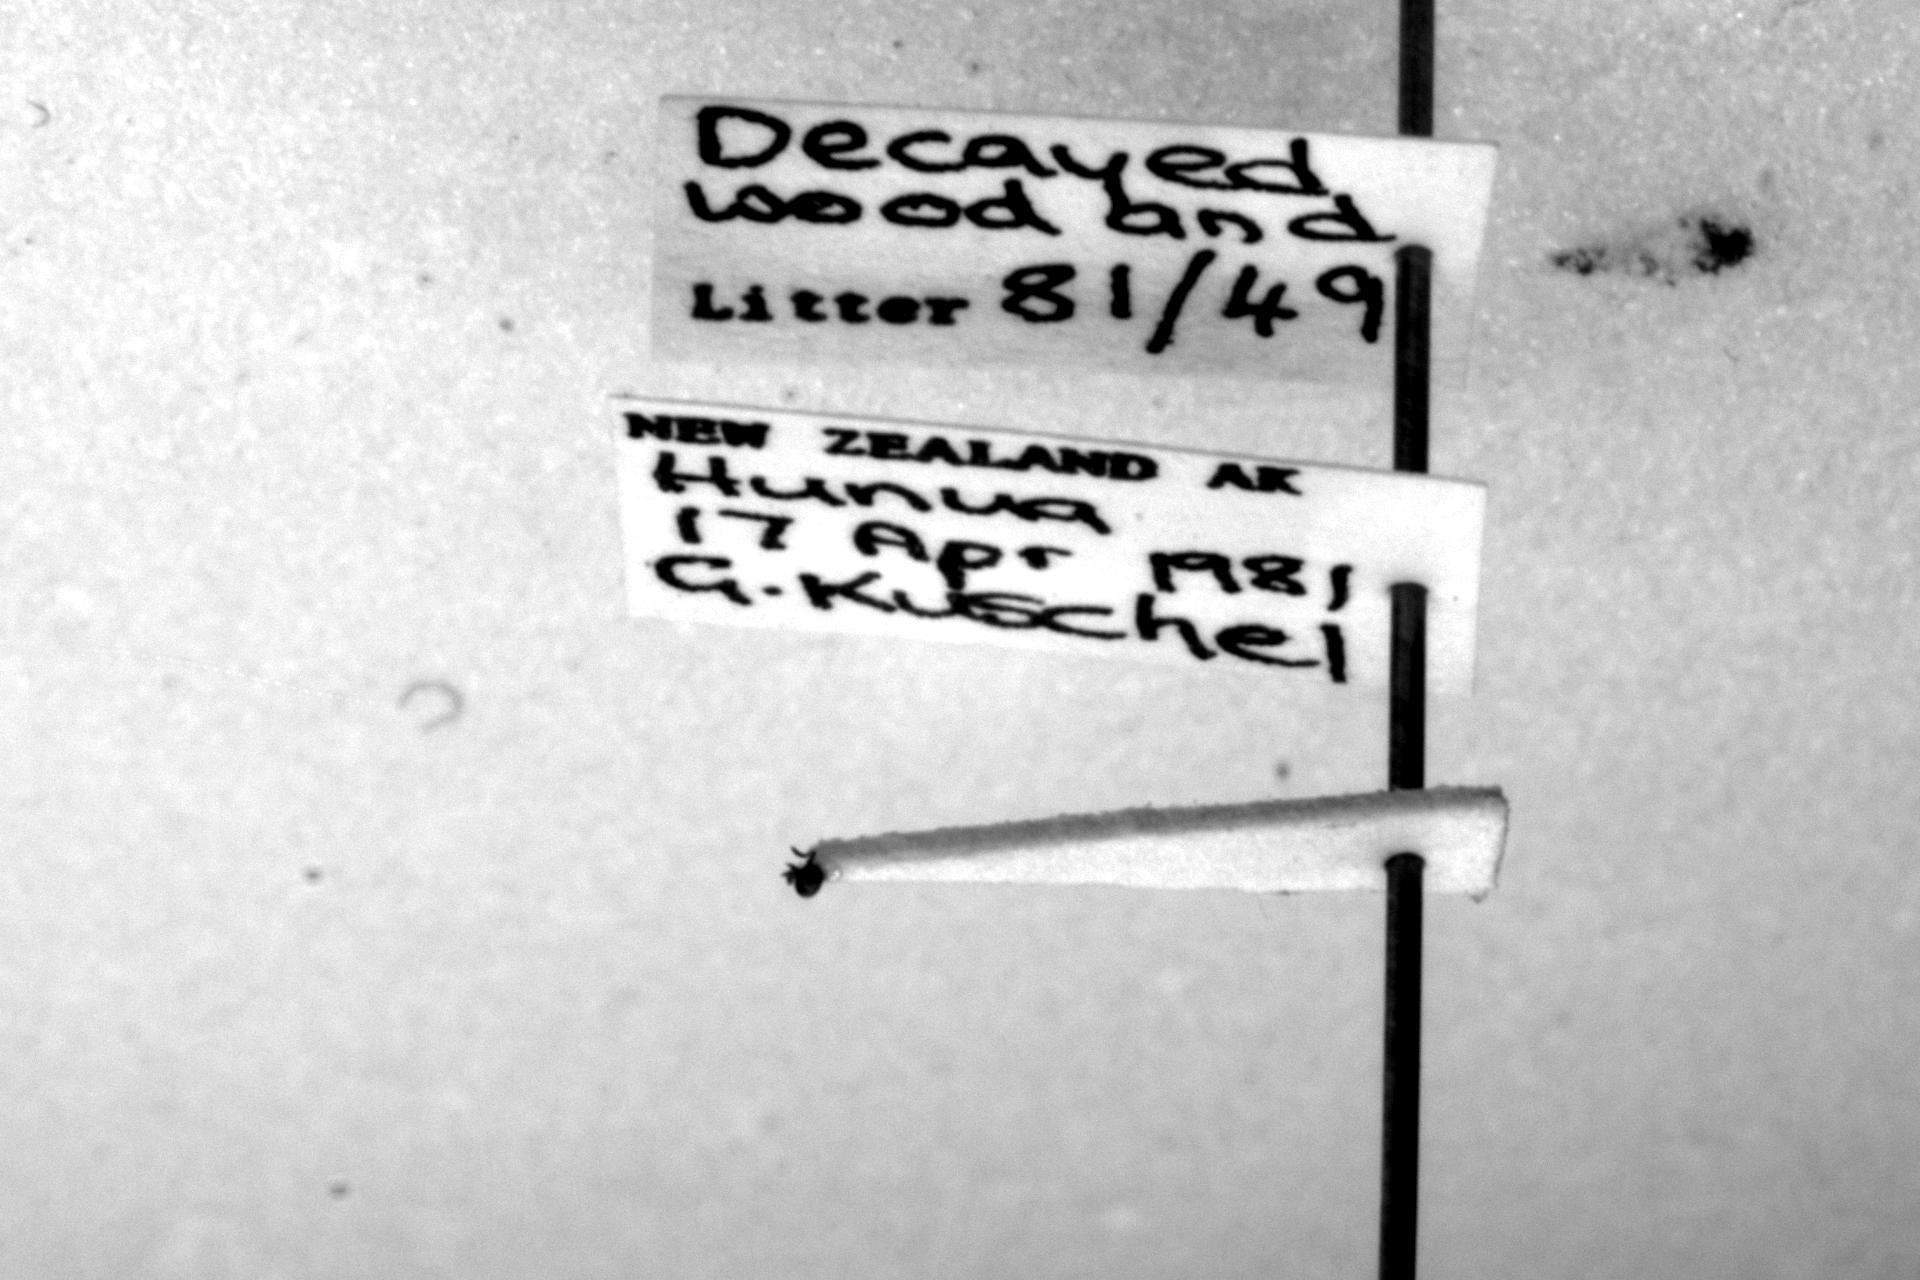 Decayed
wood and
Litter 81/49
NEW ZEALAND AK
Hunua
17 Apr 1981
G. Kuschel